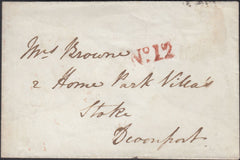 Mrs Browne
No. 12
2 Home Park Villa's
Stoke
Devonport.